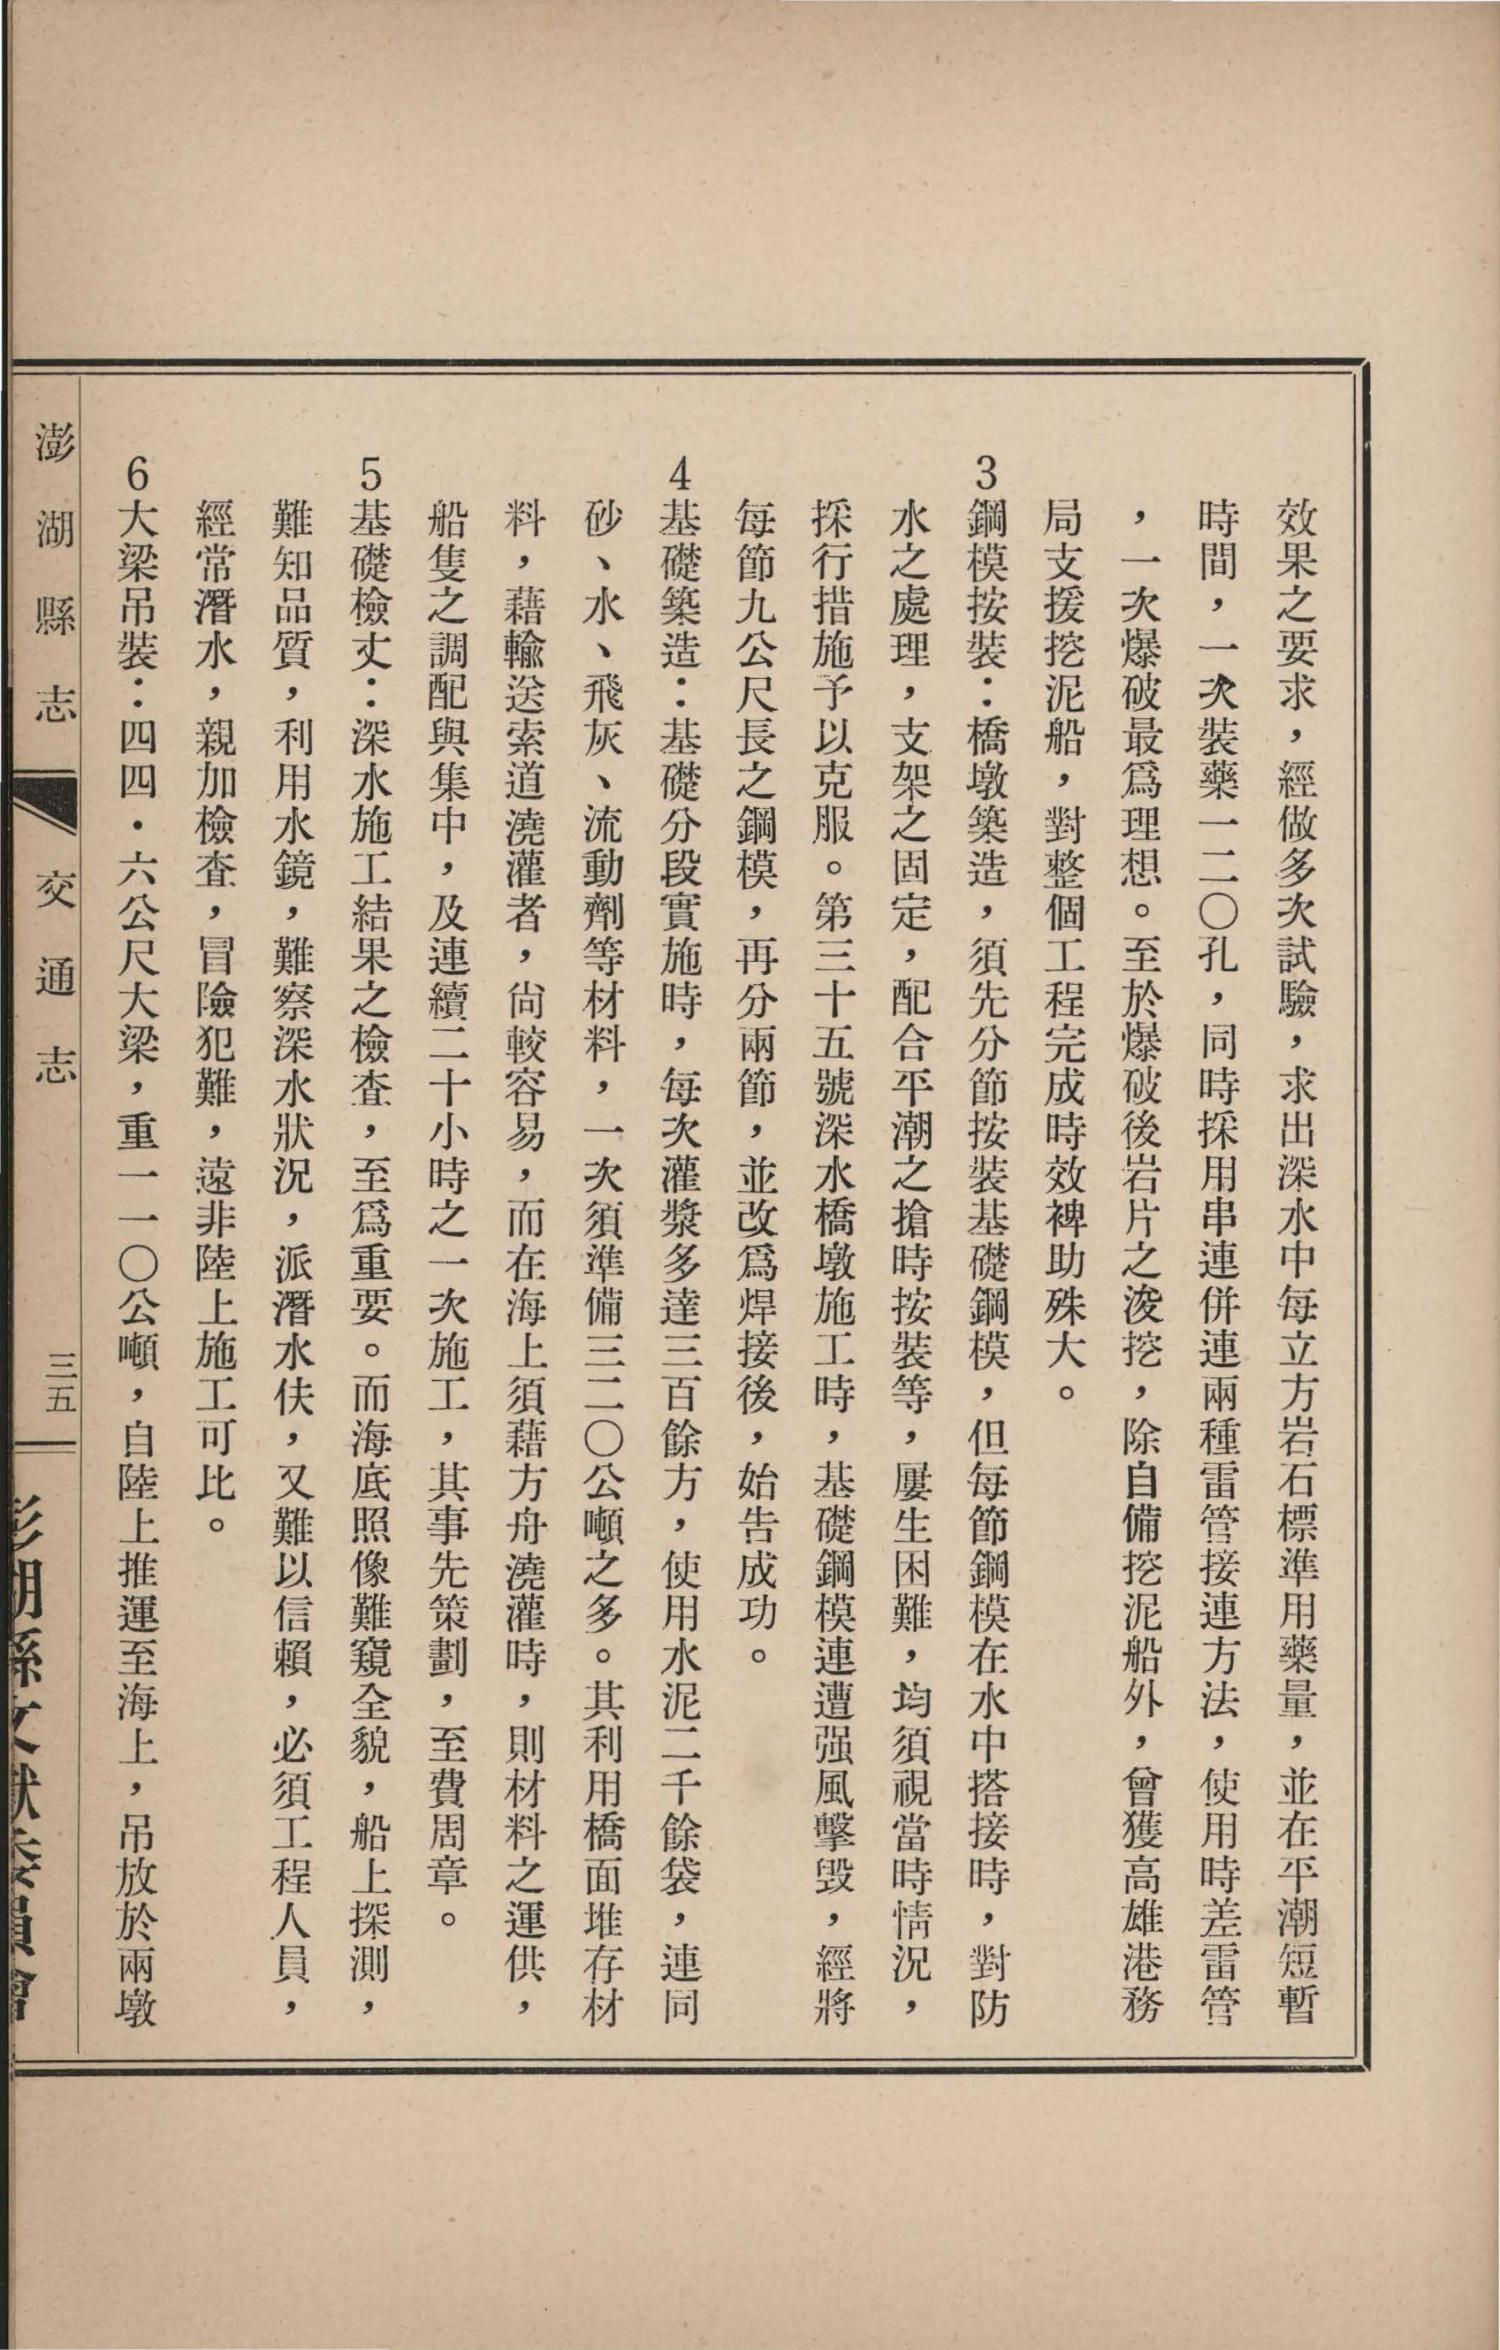 效果之要求，經做多次試驗，求出深水中每立方岩石標準用藥量，並在平潮短暫
時間，一次裝藥一二〇孔，同時採用串連併連兩種雷管接連方法，使用時差雷管
，一次爆破最爲理想。至於爆破後岩片之浚挖，除自備挖泥船外，曾獲高雄港務
局支援挖泥船，對整個工程完成時效裨助殊大。
3鋼模按裝：橋墩築造，須先分節按裝基礎鋼模，但每節鋼模在水中搭接時，對防
水之處理，支架之固定，配合平潮之搶時按裝等，屢生困難，均須視當時情況，
採行措施予以克服。第三十五號深水橋墩施工時，基礎鋼模連遭强風擊毀，經將
每節九公尺長之鋼模，再分兩節，並改爲焊接後，始告成功。
4基礎築造：基礎分段實施時，每次灌漿多達三百餘方，使用水泥二千餘袋，連同
砂、水、飛灰、流動劑等材料，一次須準備三二〇公噸之多。其利用橋面堆存材
料，藉輸送索道澆灌者，尙較容易，而在海上須藉方舟澆灌時，則材料之運供，
船隻之調配與集中，及連續二十小時之一次施工，其事先策劃，至費周章。
5基礎檢丈：深水施工結果之檢查，至爲重要。而海底照像難窺全貌，船上探測，
難知品質，利用水鏡，難察深水狀況，派潛水伕，又難以信賴，必須工程人員，
經常潛水，親加檢查，冒險犯難，遠非陸上施工可比。
6大梁吊裝：四四・六公尺大梁，重一一〇公噸，自陸上推運至海上，吊放於兩墩
澎湖縣志 交通志 三五 澎湖縣文獻委員會